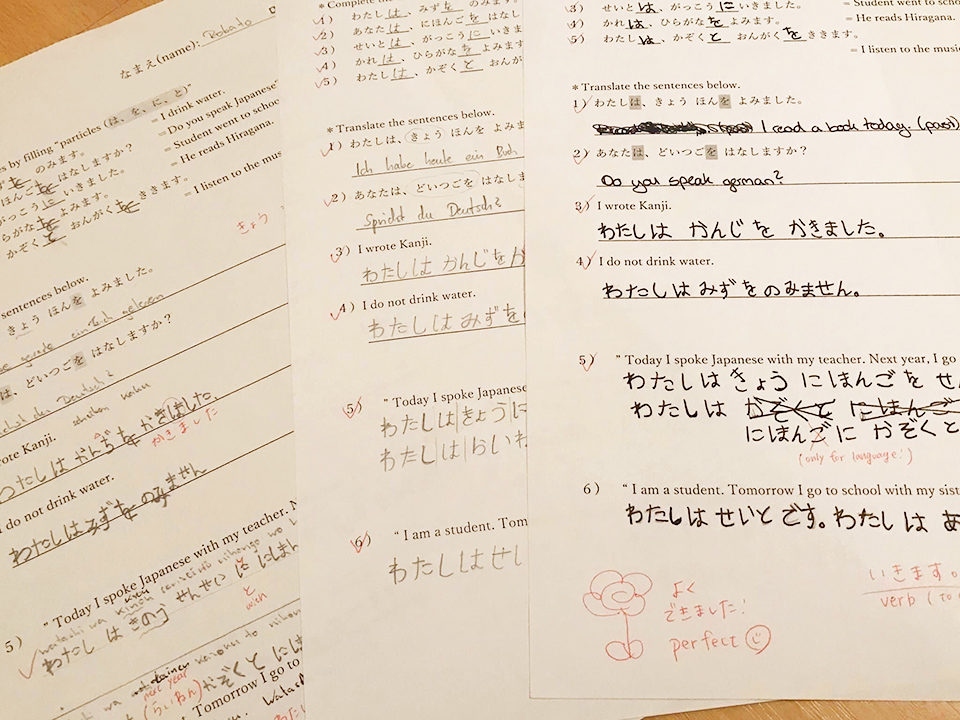 なまえ(name): Roba
es by filling "particles (は、を、に、と)"
を のみます。 = I drink water.
ほんごを はなしますか? = Do you speak Japanese
がっこうに いきました。 = Student went to schoo
らがなを よみます。 = He reads Hiragana.
かぞくと おんがくを ききます。 = I listen to the mus
きょう
sentences below.
きょう ほんを よみました。
は、どいつごを はなしますか?
rote Kanji.
わたしは かんぢを かきました。
かきました
do not drink water.
わたしはみずを のみません
5) " Today I spoke Japanese with my teacher. N
わたし は きのう せんせい に にほん
と
with
next year
(らいねん) かぞく と に
Tomorrow I go to
* Complete the
√1) わたし は、みずを のみます。
√2) あなた は、にほんごを はなし
√3) せいと は、がっこう に いきま
√4) かれ は、ひらがな を よみます
√5) わたし は、かぞく と おんが
* Translate the sentences below.
1) わたしは、きょう ほんを よみま
Ich habe heute ein Buch
2) あなたは、どいつごを はなしま
Sprichst du Deutsch?
3) I wrote Kanji.
わたしは かんじを か
4) I do not drink water.
わたしは みずを の
5) " Today I spoke Japanese
わたしは きょう に
わたしは らいね
6) " I am a student. Tom
わたしはせい
3) せいと は、がっこう に いきました。 = Student went to
4) かれ は、ひらがな を よみます。 = He reads Hiragana.
5) わたし は、かぞく と おんがく を ききます。
= I listen to the music
* Translate the sentences below.
1) わたしは、きょう ほんを よみました。
I read a book today. (past)
2) あなたは、どいつごを はなしますか?
Do you speak german?
3) I wrote Kanji.
わたしは かんじ を かきました。
4) I do not drink water.
わたしは みずを のみません。
5) " Today I spoke Japanese with my teacher. Next year, I go
わたしは きょう にほんごを せん
わたしは かぞくと にほんご
にほんごに かぞくと
(only for language!)
6) " I am a student. Tomorrow I go to school with my sist
わたしは せいと です。わたし は あ
よく
できました!
perfect
いきます。
verb (to